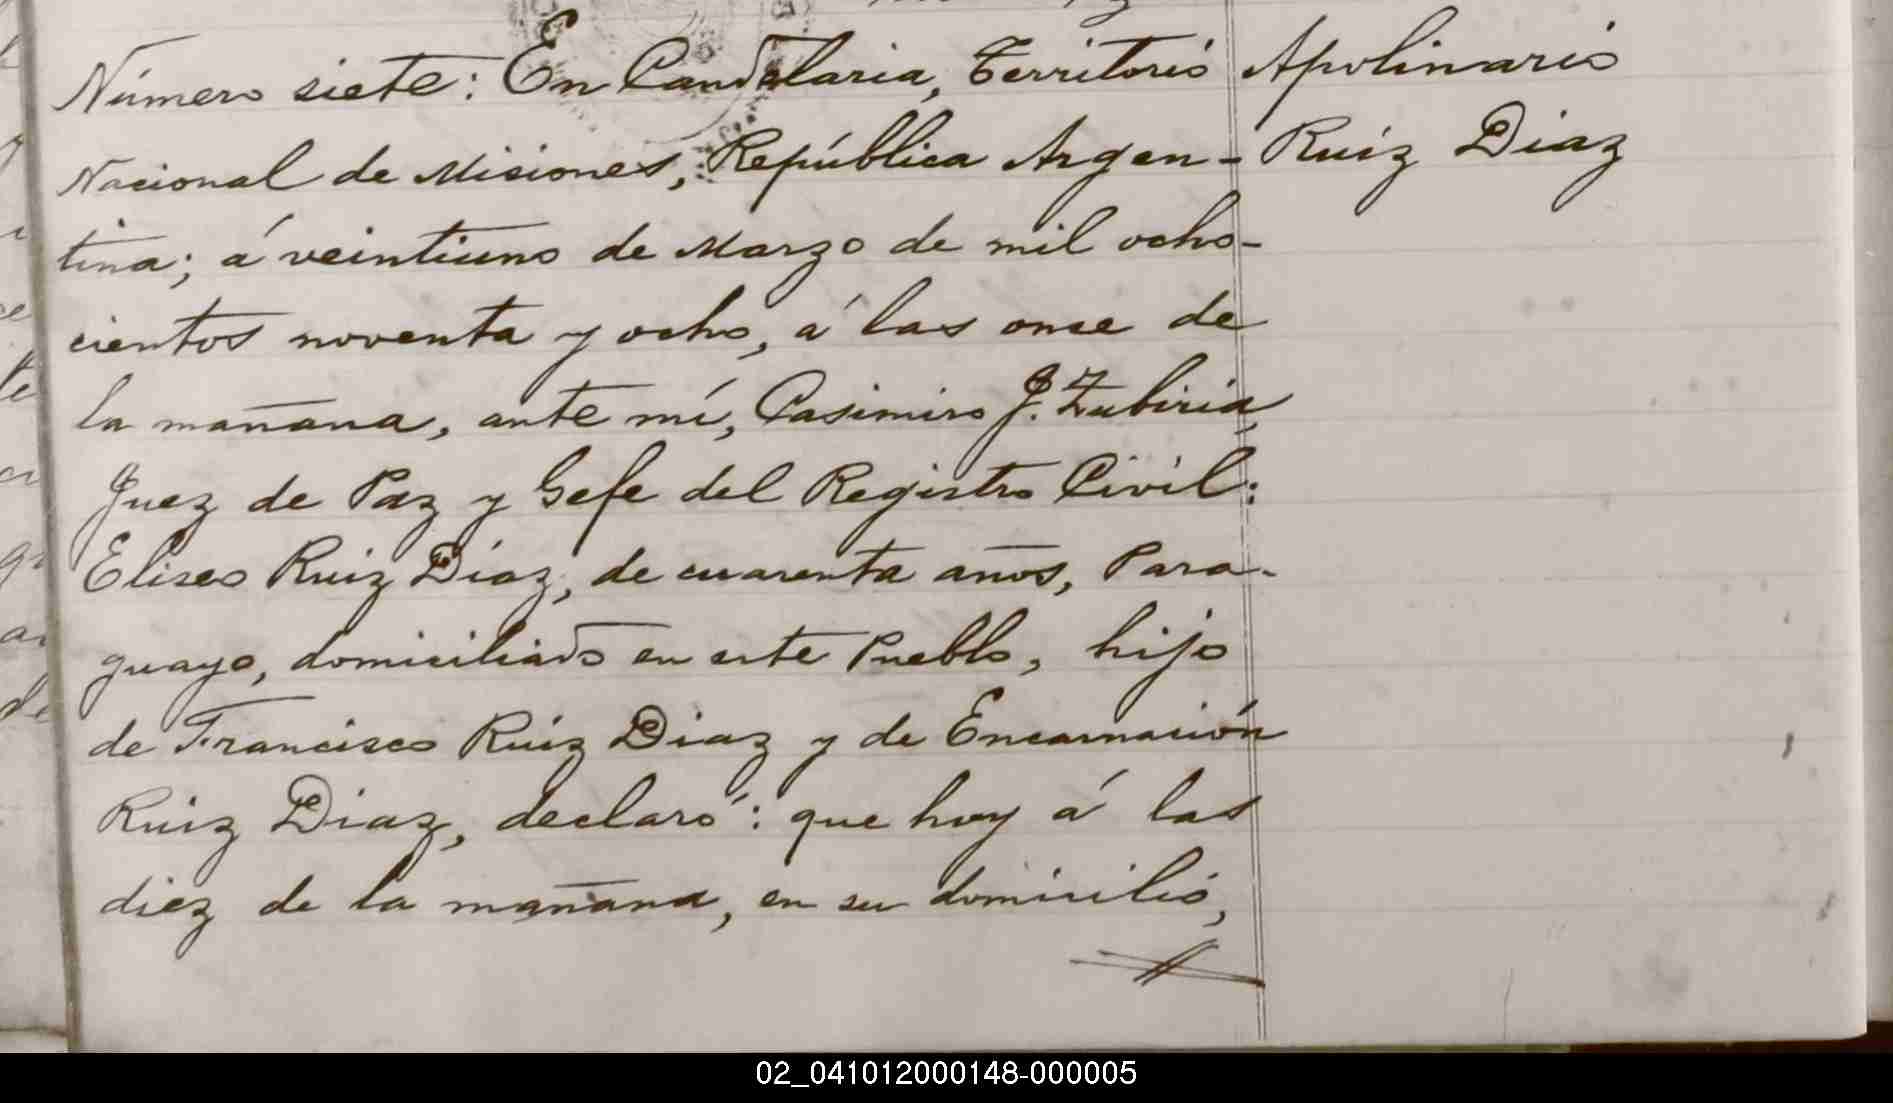 Número siete: En Candelaria, Territorio
Nacional de Misiones, República Argen-
tina; á veintiuno de Marzo de mil ocho-
cientos noventa y ocho, á las once de
la mañana, ante mí, Casimiro J. Zubiria,
Juez de Paz y Gefe del Registro Civil:
Eliseo Ruiz Díaz, de cuarenta años, Para-
guayo, domiciliado en este Pueblo, hijo
de Francisco Ruiz Diaz y de Encarnación
Ruiz Diaz, declaró: que hoy á las
diez de la mañana, en su domicilio,
Apolinario
Ruiz Diaz
02_041012000148-000005